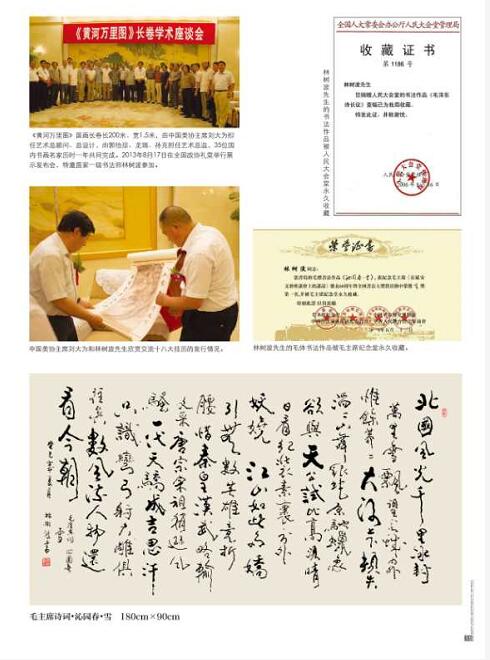 《黄河万里图》长卷学术座谈会
《黄河万里图》国画长卷长200米，宽1.5米，由中国美协主席刘大为担
任艺术总顾问、总设计，由郭怡孮、龙瑞、孙克担任艺术总监，35位国
内书画名家历时一年共同完成。2013年8月17日在全国政协礼堂举行展
示发布会，特邀国家一级书法师林树波参加。
中国美协主席刘大为和林树波先生欣赏交流十八大挂历的发行情况。
林树波先生的书法作品被人民大会堂永久收藏
全国人大常委会办公厅人民大会堂管理局
收藏证书
第1186号
林树波先生
您捐赠人民大会堂的书法作品《毛泽东
诗长征》壹幅已为我局收藏。
特发此证，并致谢忱。
荣誉证书
林树波同志：
林树波先生的毛体书法作品被毛主席纪念堂永久收藏。
北国风光千里冰封
万里雪飘望长城内外
惟余莽莽大河上下顿失
滔滔山舞银蛇原驰蜡象
欲与天公试比高须晴
日看红装素裹分外
妖娆江山如此多娇
引无数英雄竞折
腰惜秦皇汉武略输
文采唐宗宋祖稍逊风
骚一代天骄成吉思汗
只识弯弓射大雕俱
往矣数风流人物还
看今朝
毛主席诗词·沁园春·雪 180cm×90cm